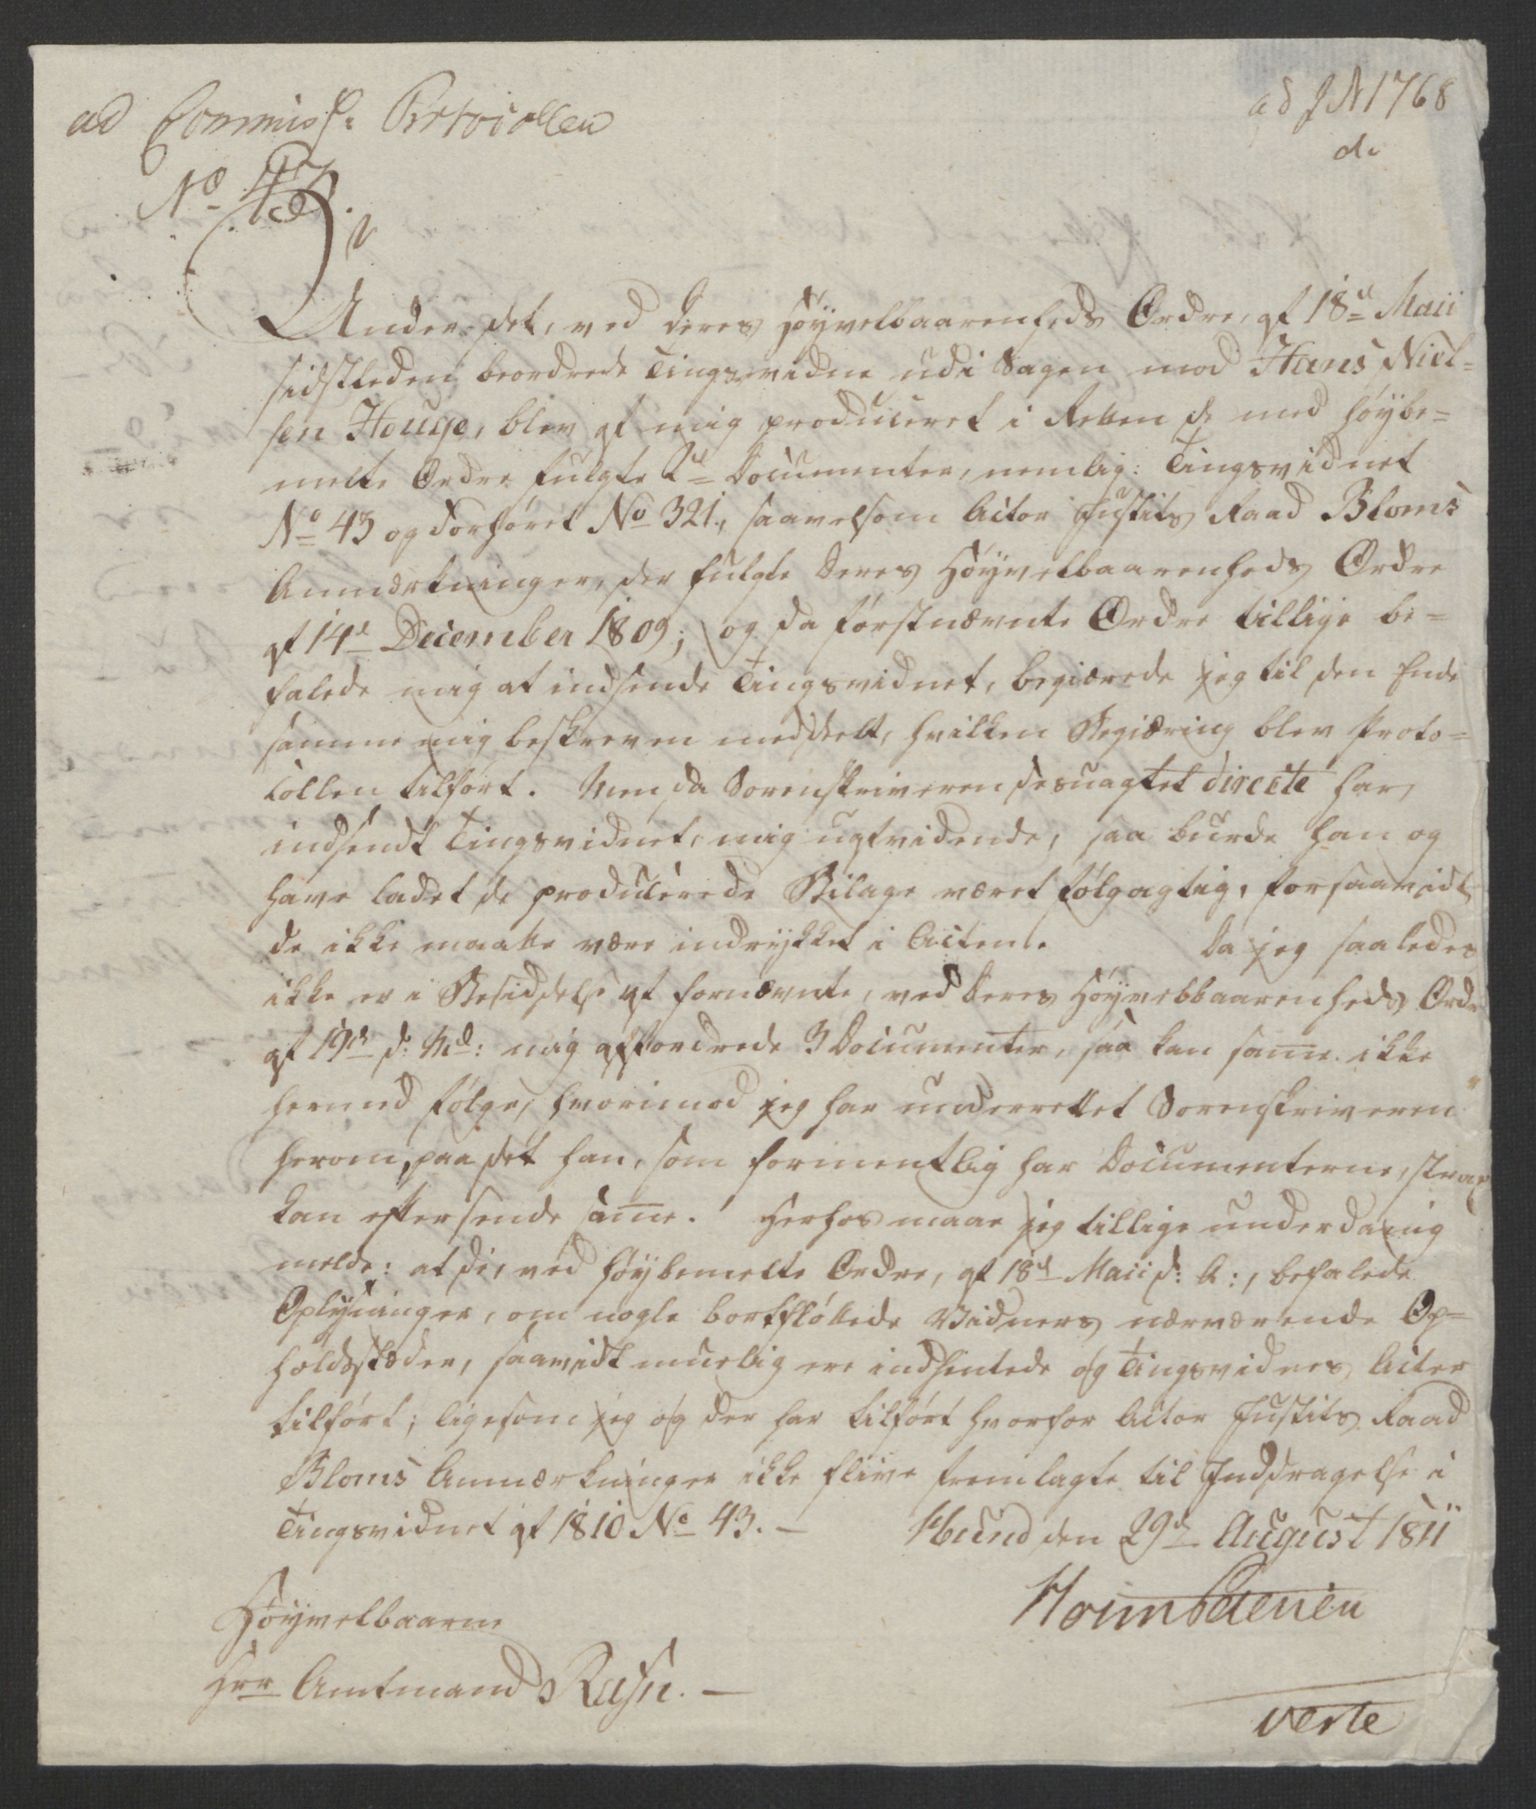 ad Commiss: Protocollen
No 43.
ad J N 1768
d.
Under det, ved Deres Høyvelbaarenheds Ordre, af 18d Maii
sidstleden beordrede Tingsvidne udi Sagen mod Hans Niel-
sen Houge, blev af mig produceret i Retten de med høybe-
melte Ordre fulgte 2de Documenter, nemlig: Tingsvidnet
No 43 og Forhøret No 321, saavelsom Actor Justits Raad Bloms
Anmærkninger, der fulgte Deres Høyvelbaarenheds Ordre
af 14d December 1809; og da førstnævnte Ordre tillige be-
falede mig at indsende Tingsvidnet, begiærede jeg til den Ende
samme mig beskreven meddeelt, hvilken Begiæring blev Proto-
collen tilført. Men da Sorenskriveren desuagtet directe har,
indsendt Tingsvidnet, mig uafvidende, saa burde han og
have ladet de producerede Bilage været følgagtig, forsaavidt
de ikke maatte være indrykket i Acten. Da jeg saaledes
ikke er i Besiddelse af fornævnte, ved Deres Høyvelbaarenheds Ordre
af 19d d: Md: mig affordrede 3 Documenter, saa kan samme ikke
hermed følge, hvorimod jeg har underrettet Sorenskriveren
herom, paa det han, som formentlig har Documenterne, strax
kan eftersende samme. Herhos maae jeg tillige underdanig
melde: at de, ved høybemelte Ordre, af 18d Maii d: A:, befalede
Oplysninger, om nogle bortfløttede Vidners nærværende Op-
holdsstæder, saavidt muelig ere indhentede og Tingsvidnes Acten
tilført; ligesom jeg og der har tilført hvorfor Actor Justits Raad
Bloms Anmærkninger ikke blive fremlagte til Inddragelse i
Tingsvidnet af 1810 No 43. – Hund den 29d August 1811
Høyvelbaarne
Herr Amtmand
verte